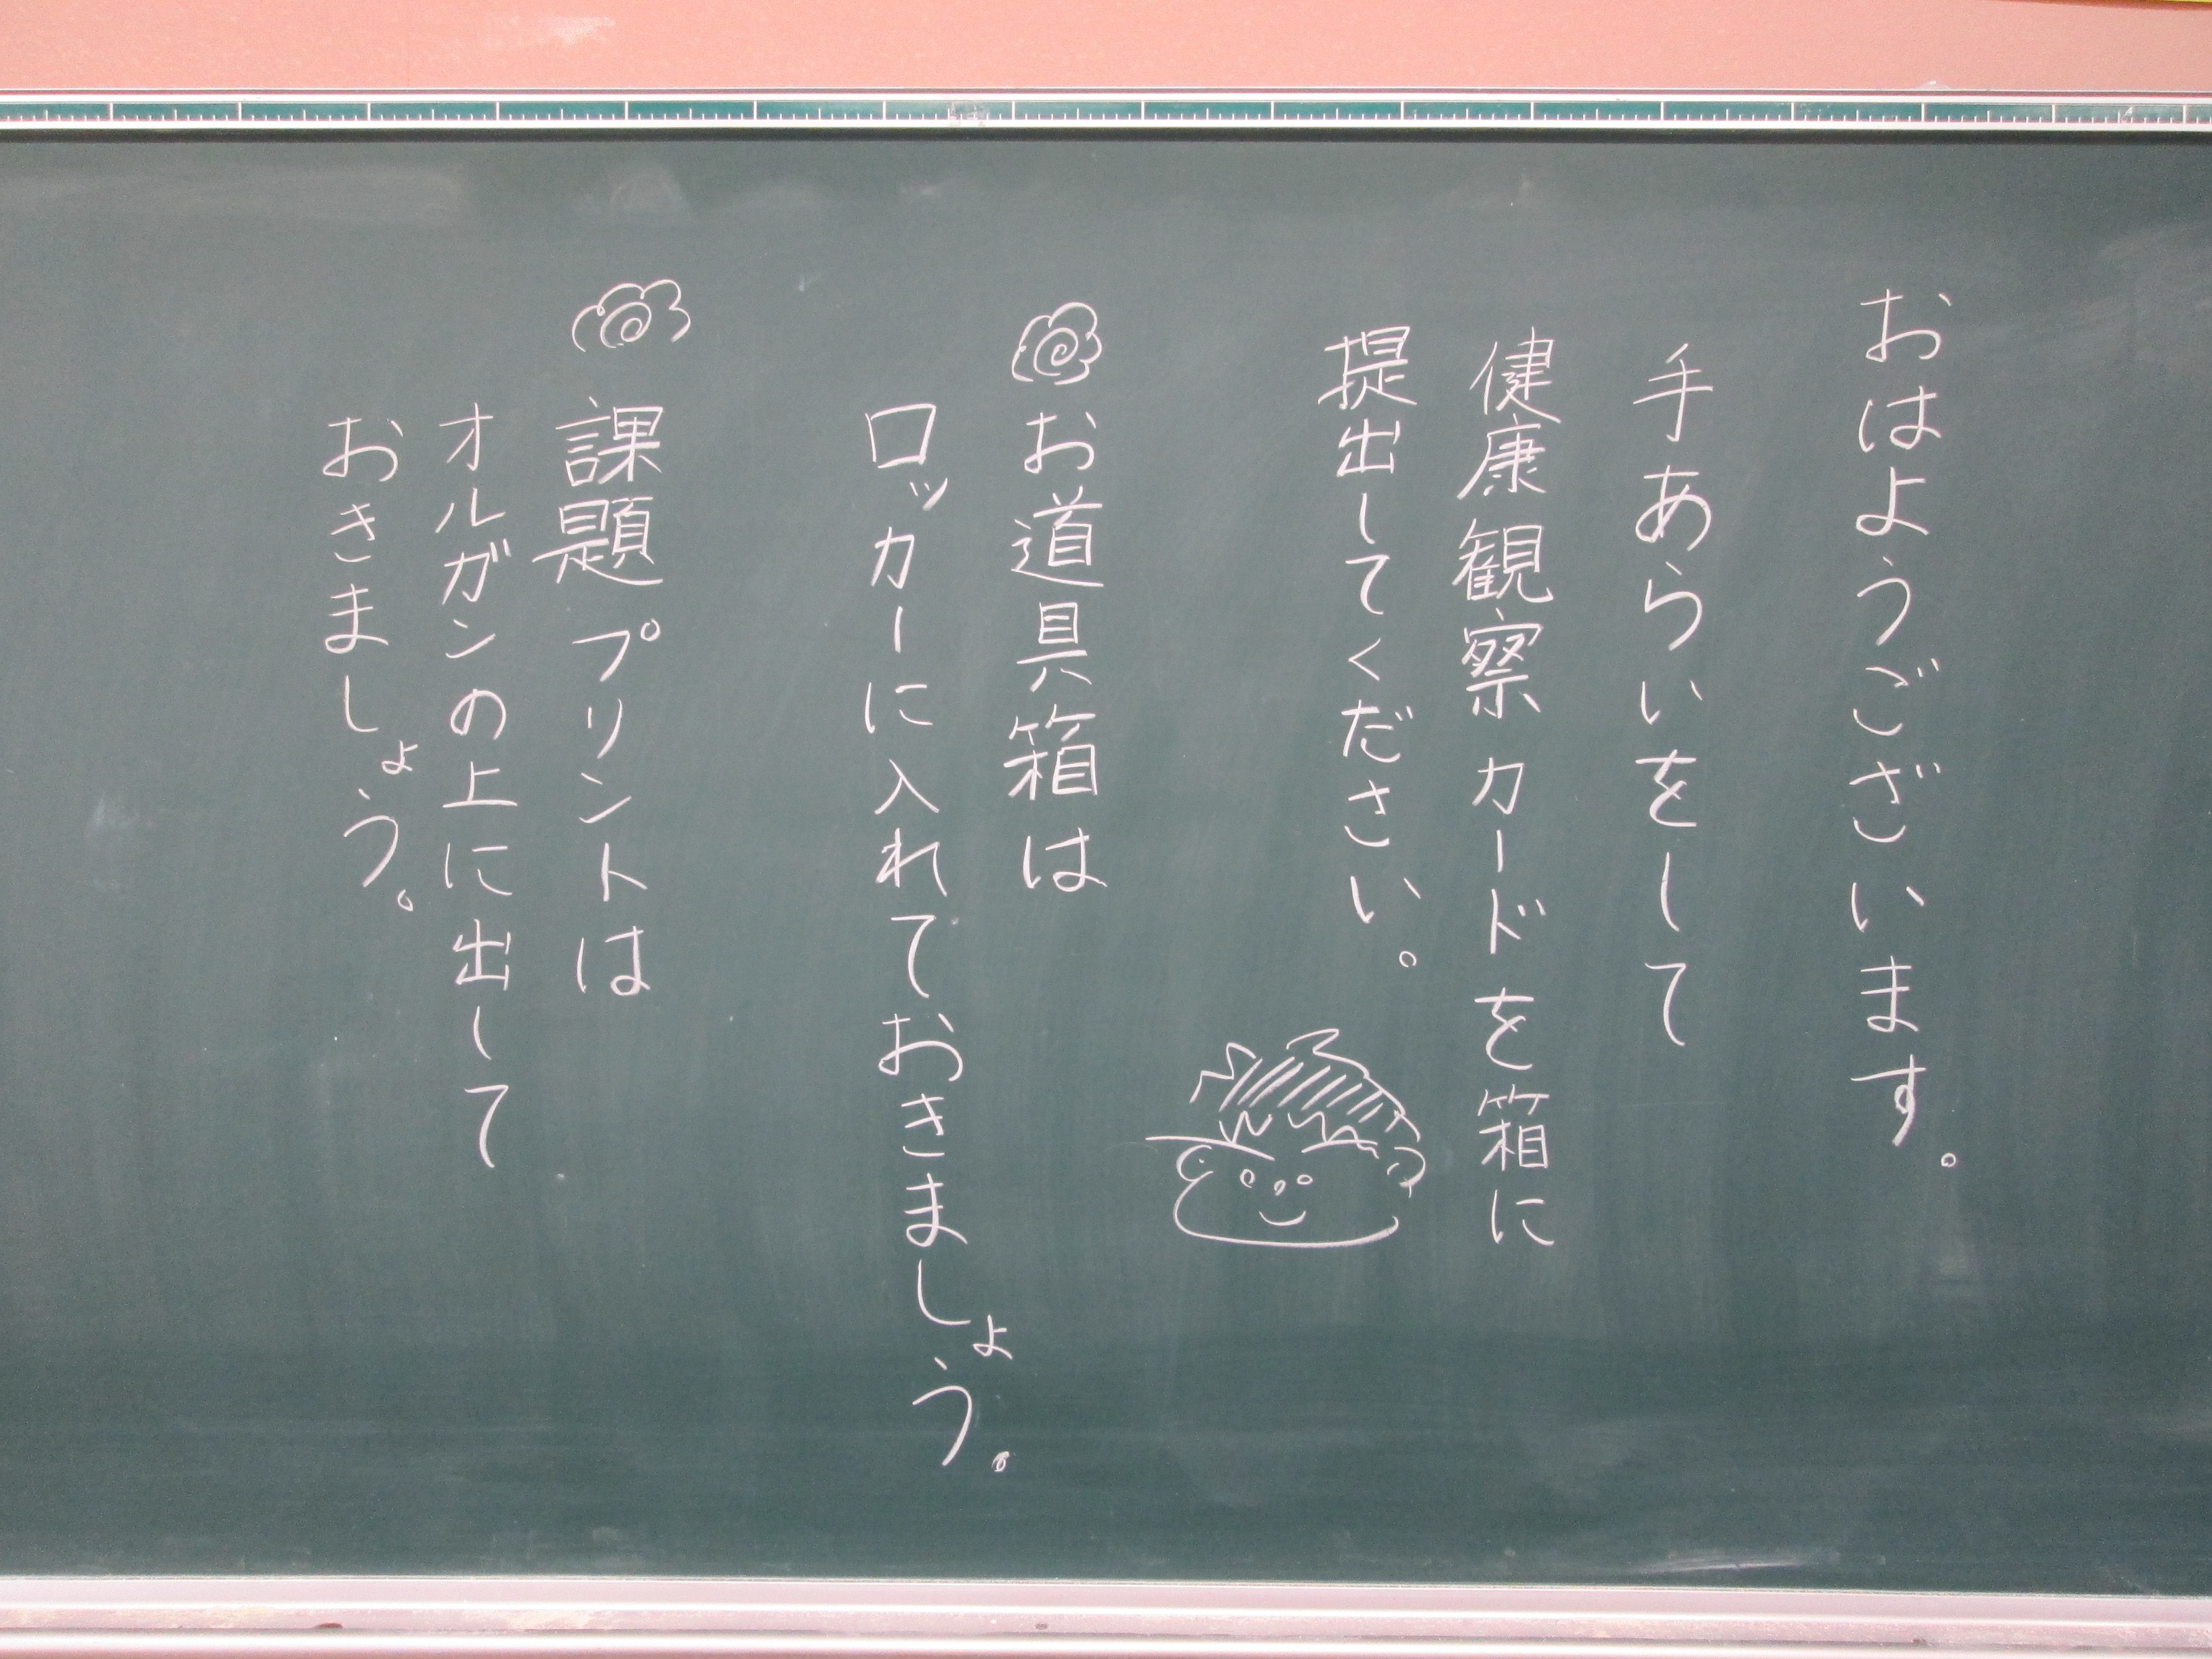 おはようございます。
手あらいをして
健康観察カードを箱に
提出してください。
お道具箱は
ロッカーに入れておきましょう。
課題プリントは
オルガンの上に出して
おきましょう。